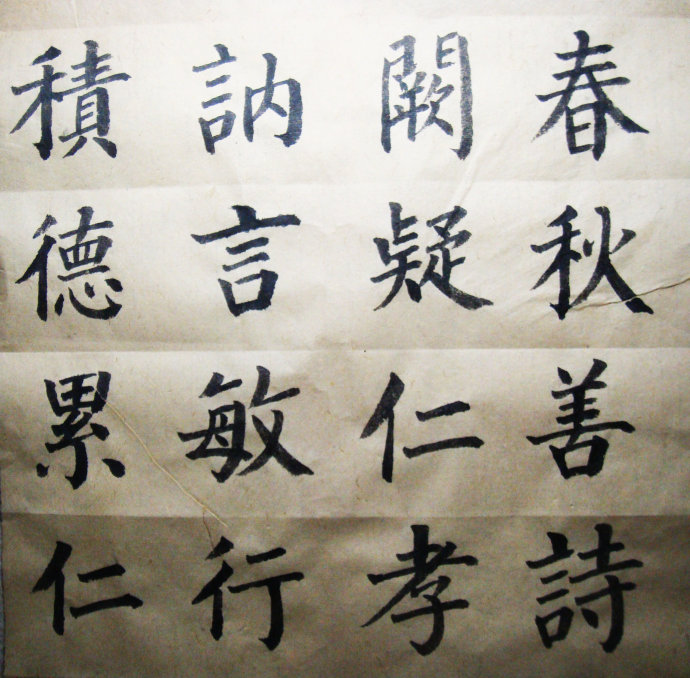 春秋善詩
闕疑仁孝
訥言敏行
積德累仁